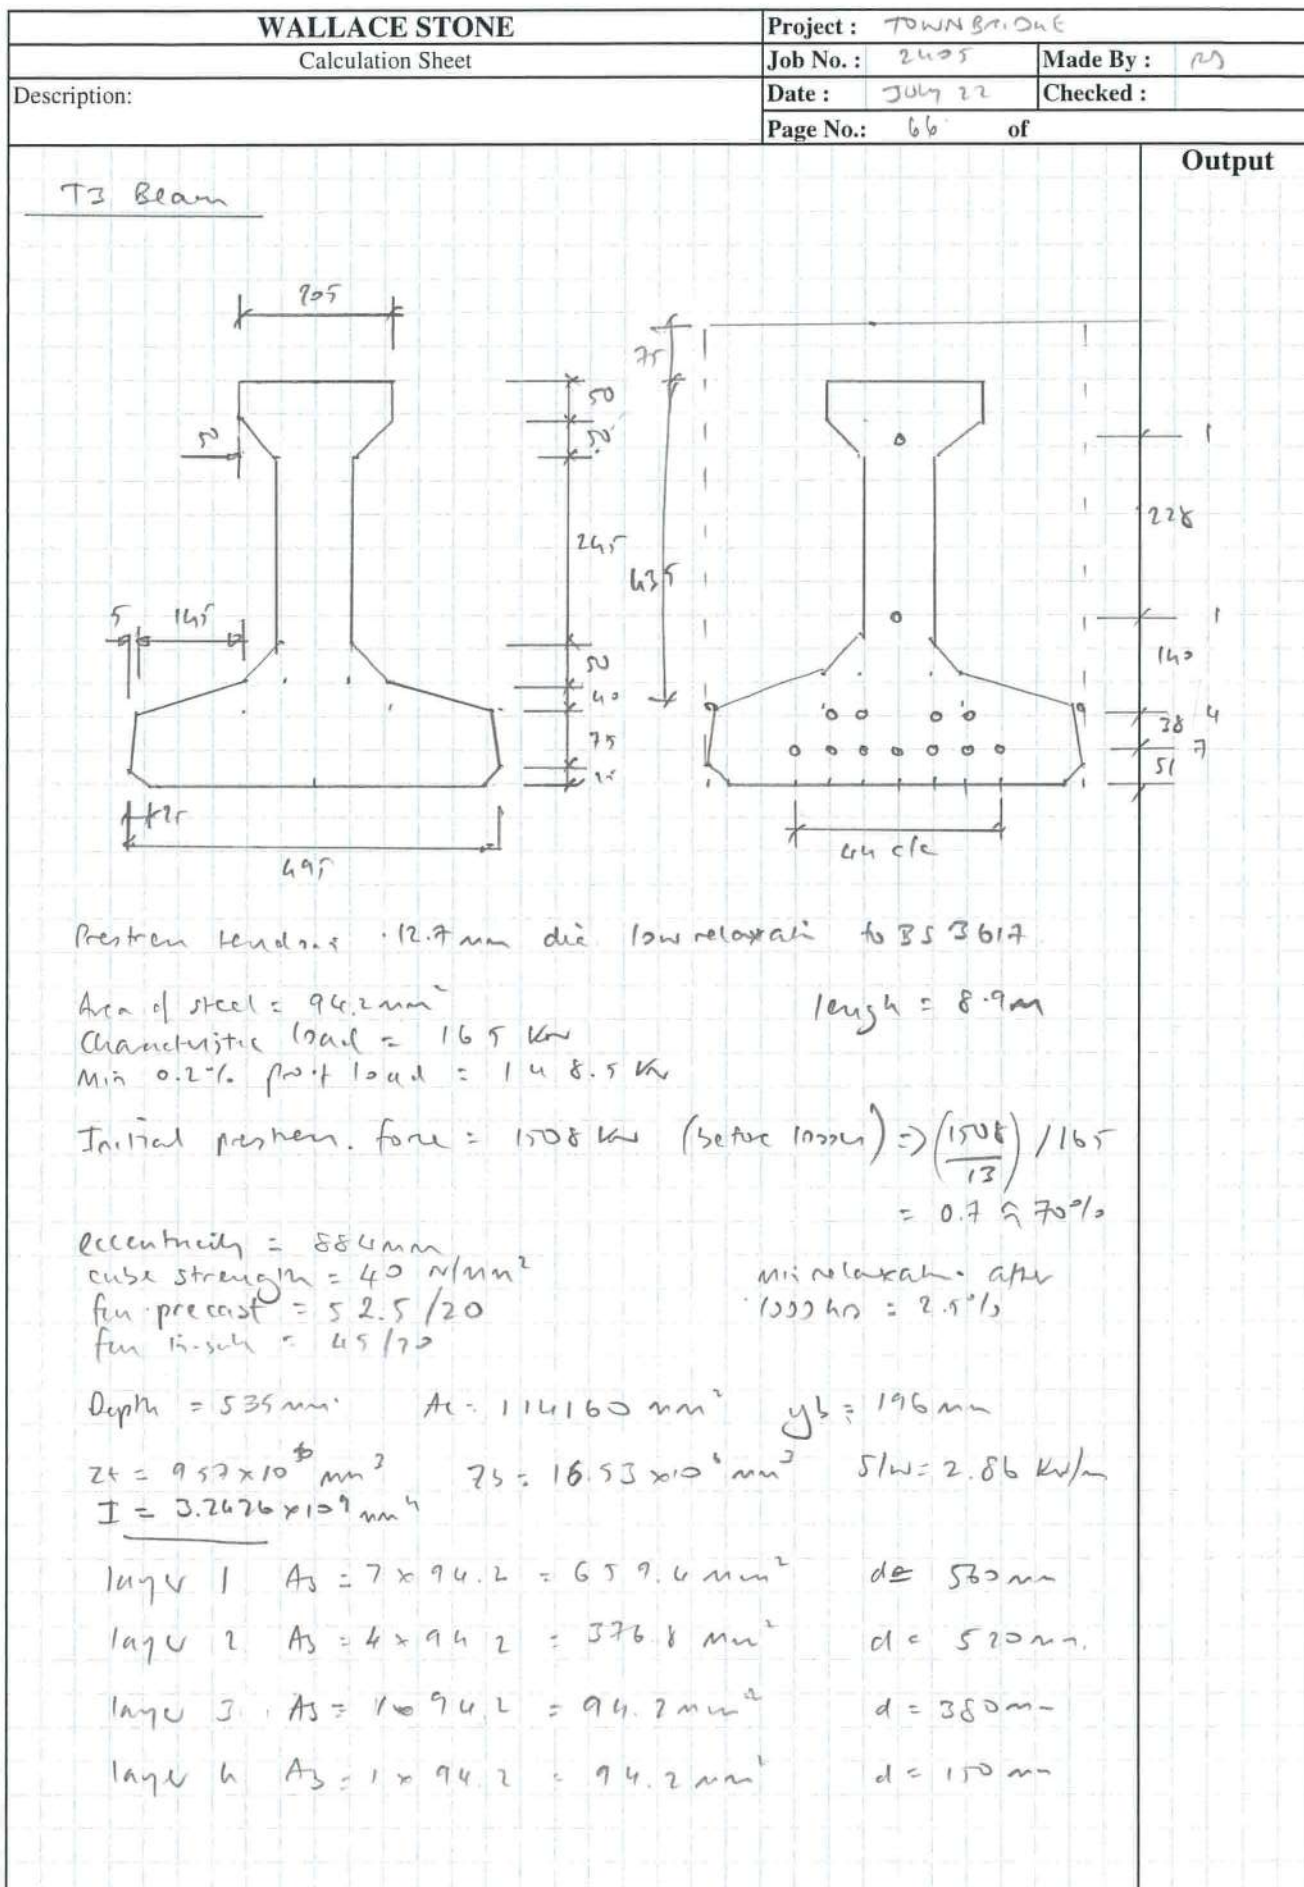 WALLACE STONE
Calculation Sheet
Description:
Project : TOWN BRIDGE
Job No. : 2405 Made By :
Date : July 22 Checked :
Page No.: 66 of
Output
T3 Beam
205
50
50
50
245
5 145
50
40
75
25
25
495
75
435
1
228
1
140
4
38
7
51
44 c/c
Prestress tendons 12.7 mm dia low relaxation to BS 3617
Area of steel = 94.2 mm² length = 8.9m
Characteristic load = 165 kN
Min 0.2% proof load = 148.5 kN
Initial prestress force = 1508 kN (before losses) => (1508/13) / 165
= 0.7 70%
eccentricity = 88.4mm
cube strength = 40 N/mm²
fcu precast = 52.5/20
fcu in-situ = 45/20
relaxation after
1000 hrs = 2.5%
Depth = 535 mm Ac = 114160 mm² yb = 196 mm
Zt = 9.57 x 10⁶ mm³ Zb = 16.53 x 10⁶ mm³ S/W = 2.86 kN/m
I = 3.2426 x 10⁹ mm⁴
layer 1 As = 7 x 94.2 = 659.4 mm² d = 560 mm
layer 2 As = 4 x 94.2 = 376.8 mm² d = 520 mm
layer 3 As = 1 x 94.2 = 94.2 mm² d = 380 mm
layer 4 As = 1 x 94.2 = 94.2 mm² d = 150 mm